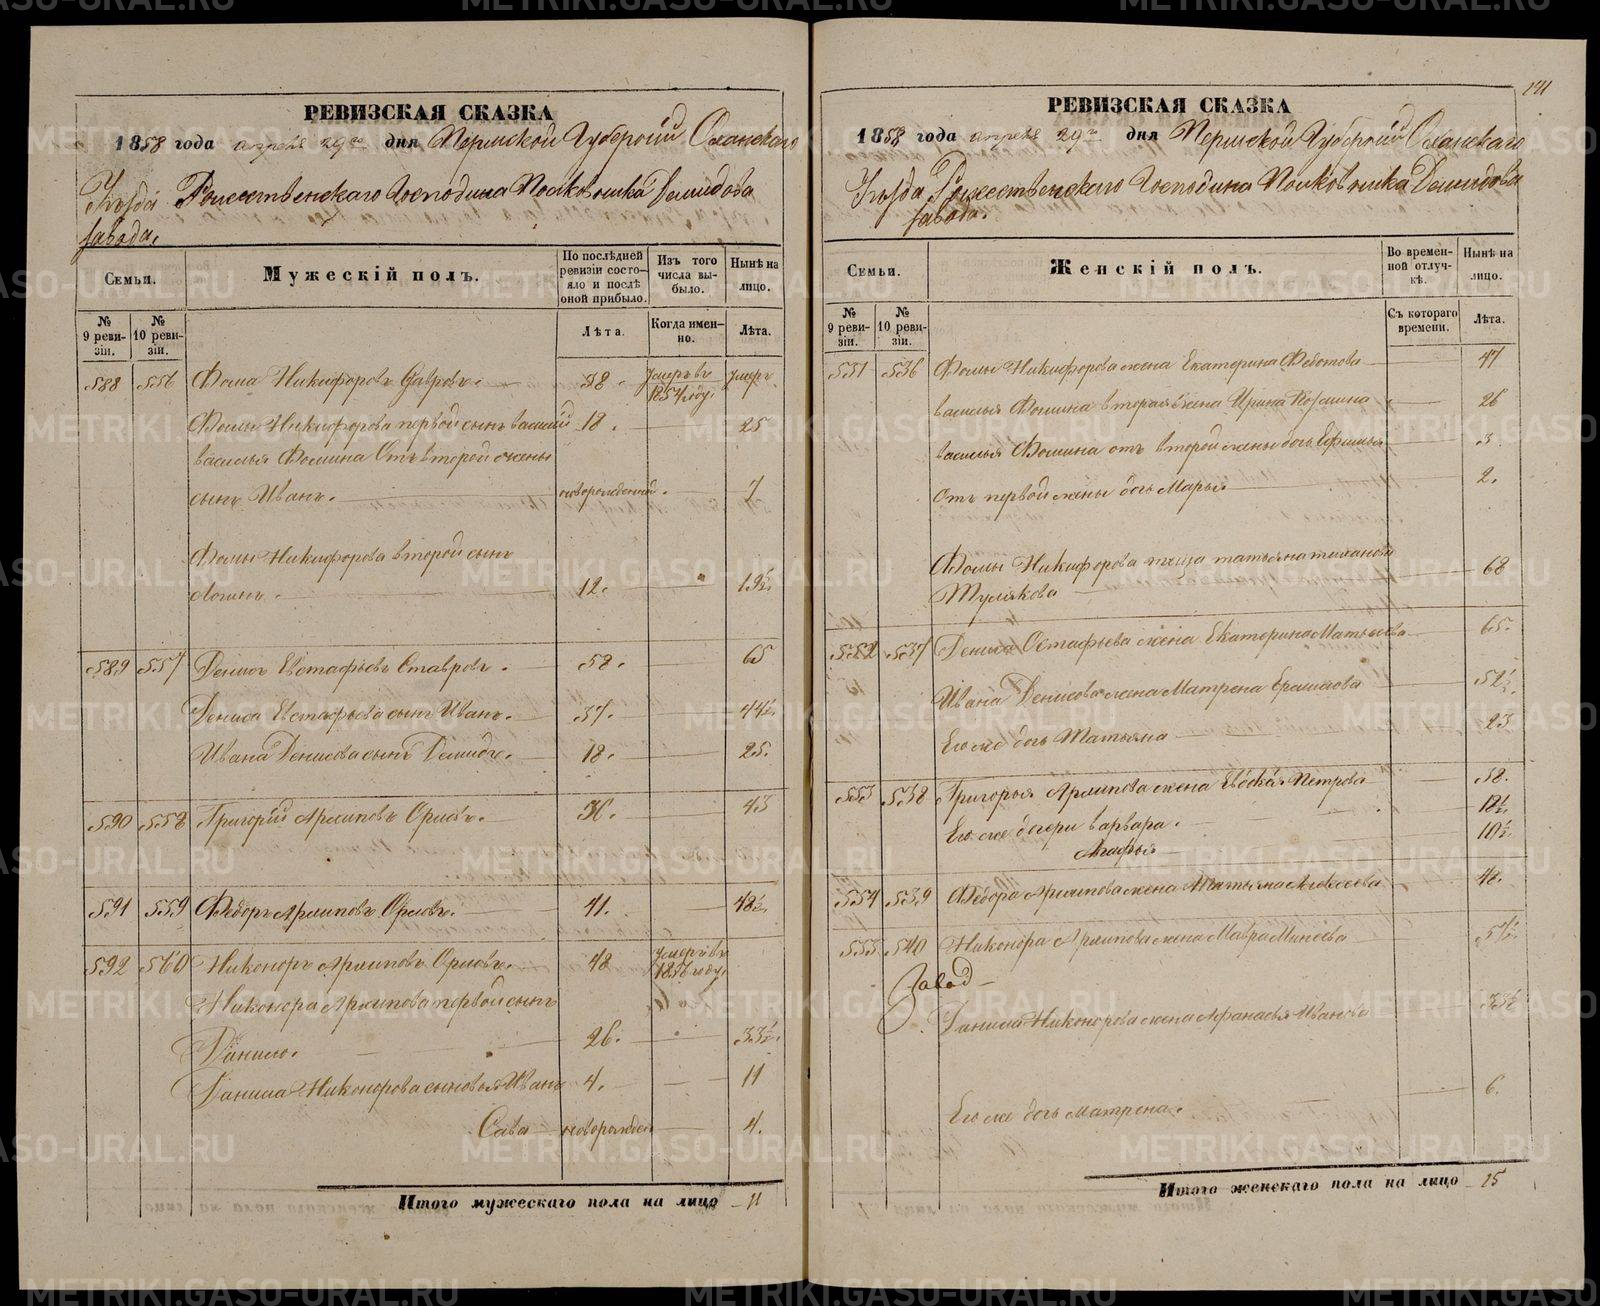 РЕВИЗСКАЯ СКАЗКА
1858 года апреля 29го дня Пермской Губерніи Оханскаго
Уѣзда Рожественскаго Господина Полковника Демидова
завода.
Семьи.
Мужескій полъ.
По послѣдней ревизіи состояло и послѣ оной прибыло.
Изъ того числа выбыло.
Нынѣ на лицо.
№ 9 ревизіи.
№ 10 ревизіи.
Лѣта.
Когда именно.
Лѣта.
588 556 Фома Никифоровъ 58. Умеръ въ 1854 году. умеръ
Фомы Никифорова первой сынъ василій 18. 25
василья Фомина Отъ второй жены
сынъ Иванъ. новорожденный. 7
Фомы Никифорова второй сынъ
Логинъ. 12. 19½.
589 557 Денисъ Евстафьевъ Ставровъ. 58. 65
Дениса Евстафьева сынъ Иванъ. 37. 44½.
Ивана Денисова сынъ Демидъ. 18. 25.
590 558 Григорій Архиповъ Орловъ. 36. 43
591 559 Федоръ Архиповъ Орловъ. 41. 48½.
592 560 Никоноръ Архиповъ Орловъ. 48 Умеръ въ 1856 году.
Никонора Архипова первой сынъ
Данило. 26. 33½.
Данила Никонорова сыновья Иванъ 4. 11
Сава новорожден 4.
Итого мужескаго пола на лицо 11
191
РЕВИЗСКАЯ СКАЗКА
1858 года апреля 29го дня Пермской Губерніи Оханскаго
Уѣзда Рожественскаго Господина Полковника Демидова
завода.
Семьи.
Женскій полъ.
Во временной отлучкѣ.
Нынѣ на лицо.
№ 9 ревизіи.
№ 10 ревизіи.
Съ котораго времени.
Лѣта.
551 536 Фомы Никифорова жена Екатерина Федотова 47
василья Фомина вторая жена Ирина Козмина 26
василья Фомина отъ второй жены дочь Ефимья 3.
Отъ первой жены дочь Марья 2.
Фомы Никифорова теща татьяна тиханова 68
Тулякова
552 537 Дениса Остафьева жена Екатерина Матвеева 65.
Ивана Денисова жена Матрена Ермилова 52½.
Его же дочь Татьяна 23
553 538 Григорья Архипова жена Евдокѣя Петрова 38.
Его же дочери варвара. 12½
Агафья 10½.
554 539 Федора Архипова жена Татьяна Алексеева 48.
555 540 Никонора Архипова жена Мавра Минеева 57½.
Данила Никонорова жена Афанасья Иванова 33½
Его же дочь матрена. 6.
Итого женскаго пола на лицо 15
METRIKI.GASO-URAL.RU